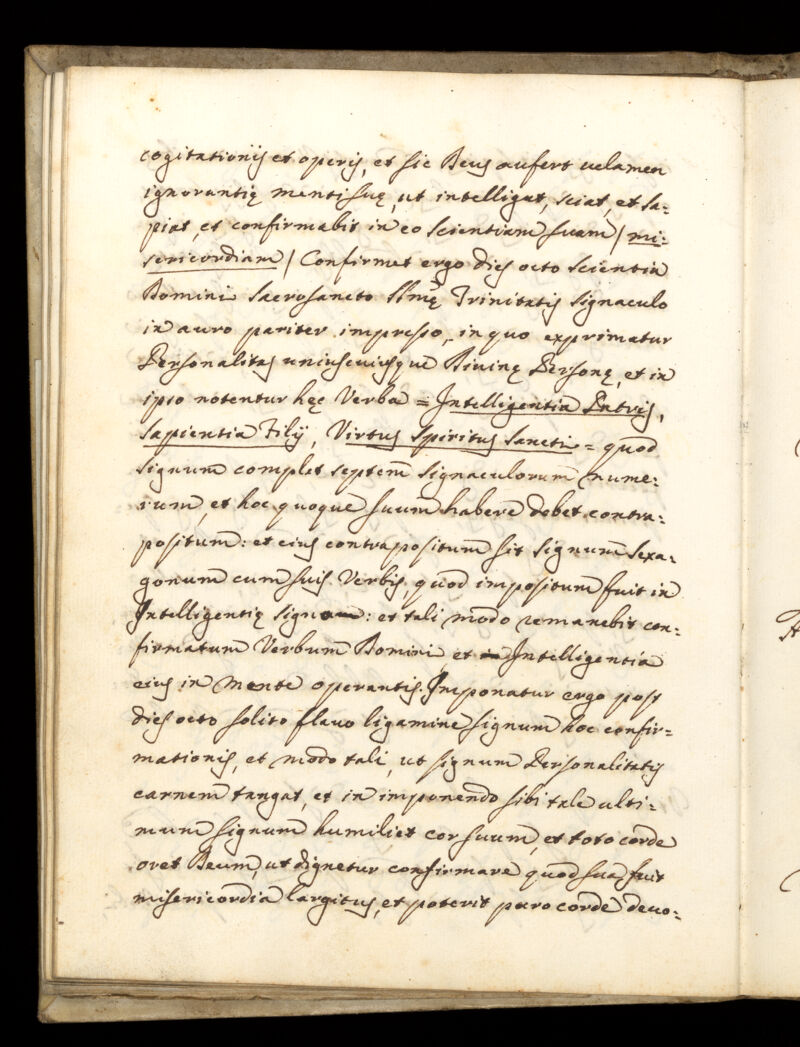 cogitationis et operis, et sic Deus aufert velamen
ignorantię mentis suę, ut intelligat, sciat, et sa=
piat, et confirmabit in eo scientiam suam / mi=
sericordiam / Confirmet ergo dies octo scientia
Domini sacrosancto SSmę Trinitatis signaculo
in auro pariter impresso, in quo exprimatur
Personalitas uniuscuiusque Divinę Personę, et in
ipso notentur hęc Verba = Intelligentia Patris,
Sapientia Filij, Virtus Spiritus Sancti = quod
signum complet septem signaculorum nume=
rum, et hoc quoque suum habere debet contra=
positum: et eius contrapositum sit signum sexa=
gonum cum suis Verbis, quod impositum fuit in
Intelligentię signo: et tali modo remanebit con=
firmatum Verbum Domini, et Intelligentia
eius in mente operantis. Imponatur ergo post
dies octo solito flavo ligamine signum hoc confir=
mationis, et modo tali, ut signum Personalitatis
carnem tangat, et in imponendo sibi tale ulti=
mum signum humiliet cor suum, et toto corde
oret Deum, ut dignetur confirmare quod sua fuit
misericordia largitus, et poterit puro corde devo=